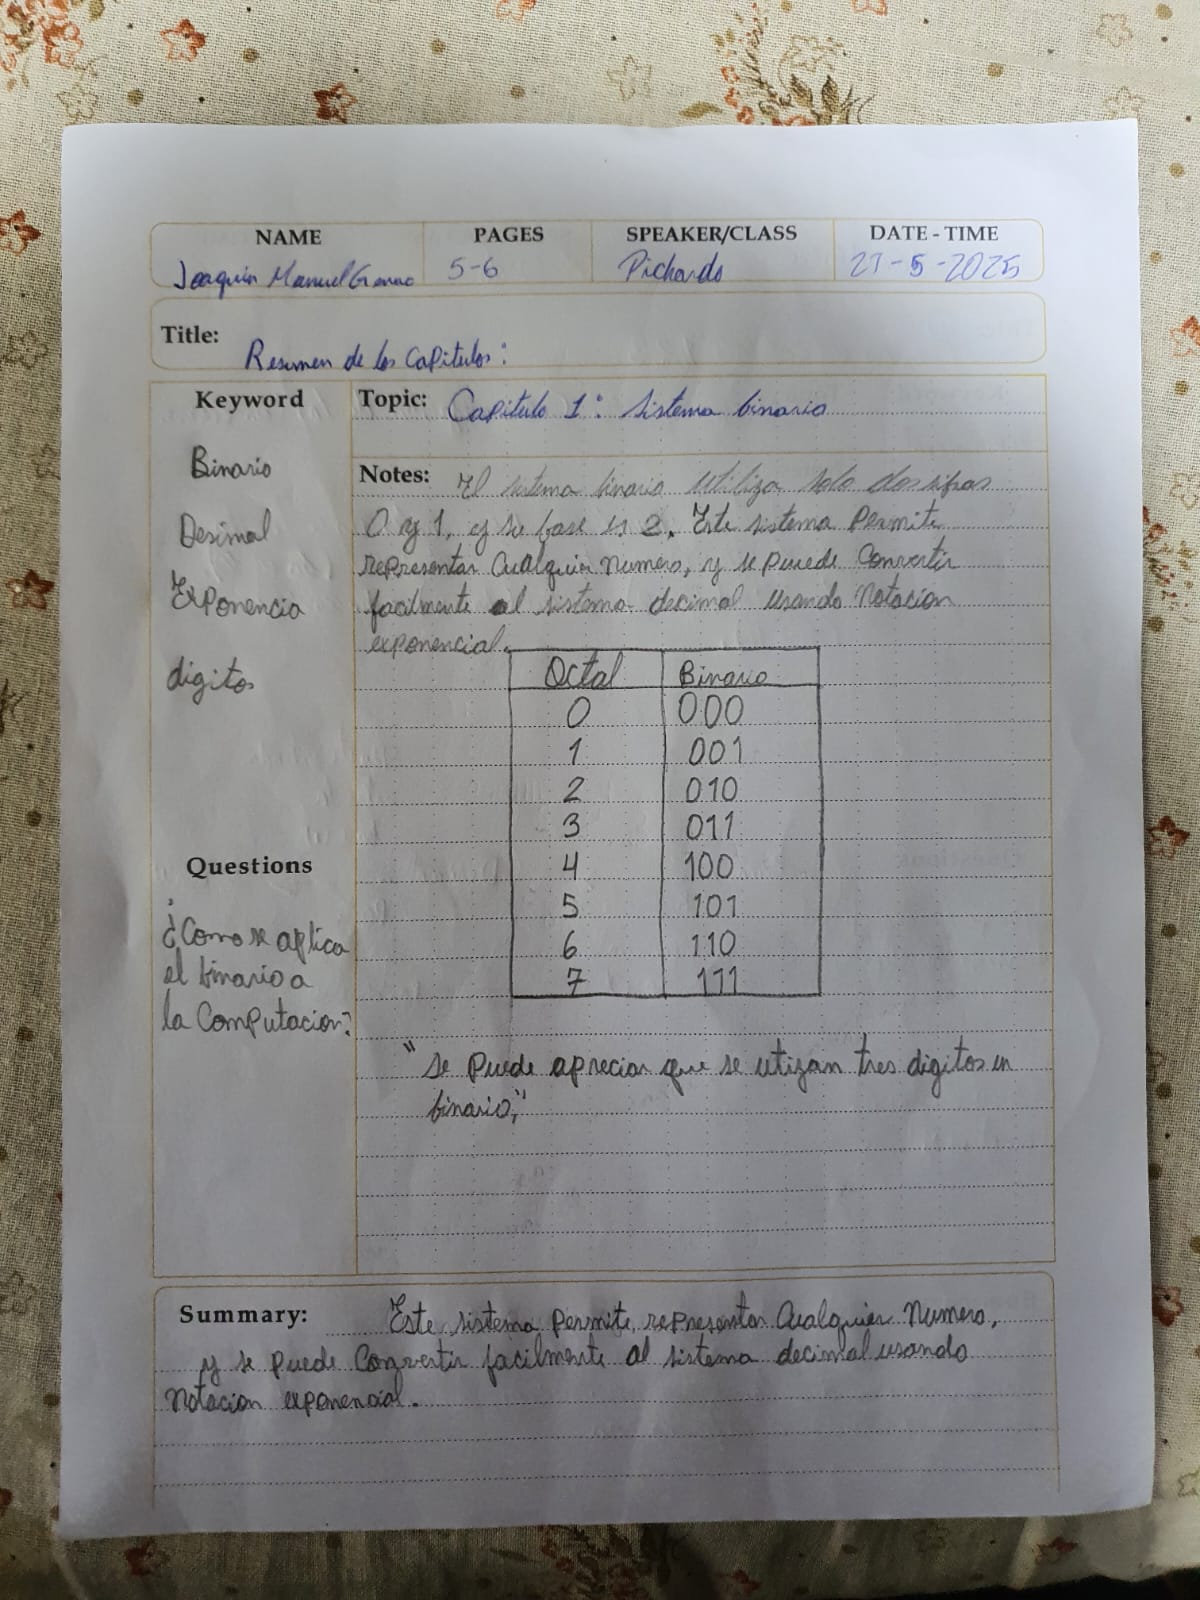 NAME PAGES SPEAKER/CLASS DATE - TIME
Joaquin Manuel 5-6 Pichardo -5-2025
Title:
Resumen de los Capitulos:
Keyword
Topic: Capitulo 1: sistema binario
Binario
Desimal
Exponencia
digitos
Notes: El sistema binario utiliza solo dos sifras
0 y 1, y su base es 2. Este sistema Permite
representar Cualquier numero, y se puede Convertir
facilmente al sistema decimal usando Notacion
exponencial.
Octal Binario
0 000
1 001
2 010
3 011
4 100
5 101
6 110
7 111
Questions
¿Como se aplica
el binario a
la Computacion?
"se Puede apreciar que se utizan tres digitos en
binario,"
Summary: Este sistema Permite representar Cualquier Numero,
y se puede Convertir facilmente al sistema decimal usando
Notacion exponencial.